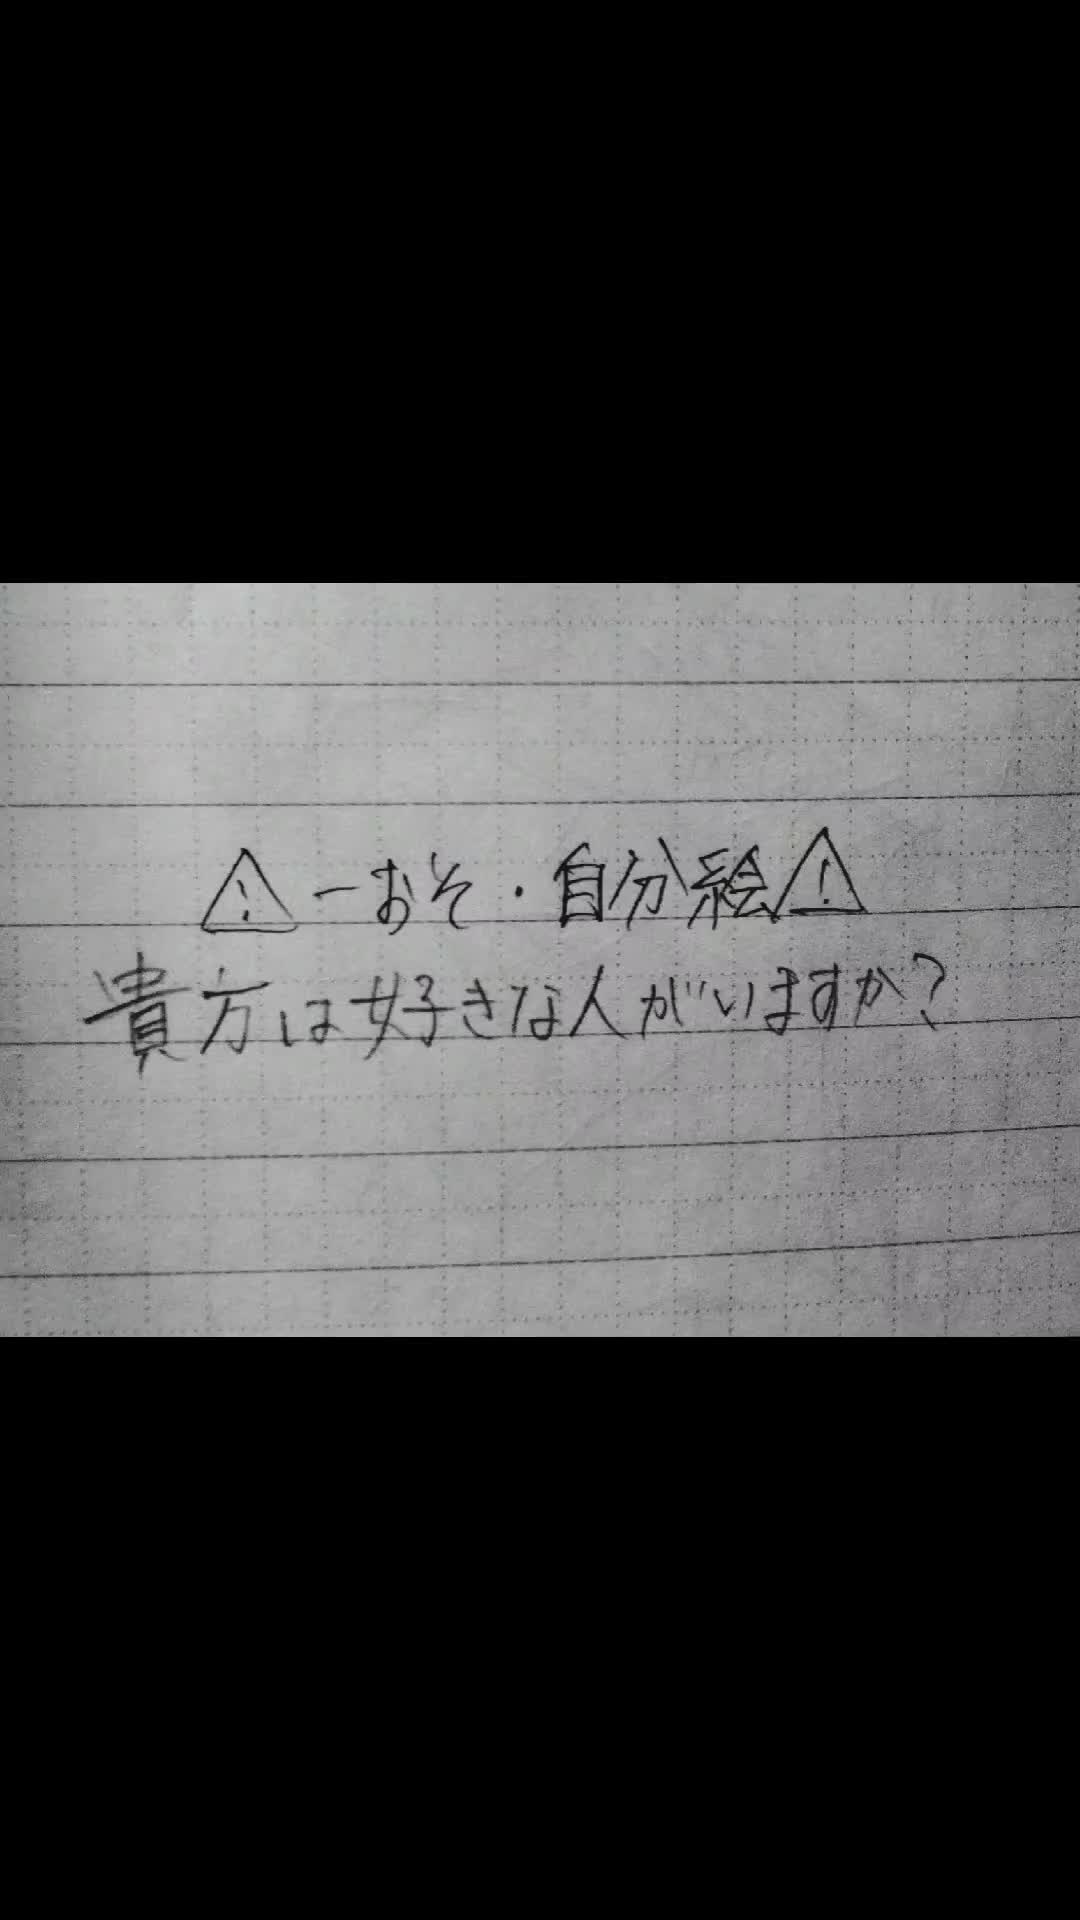 ⚠一おそ・自分絵⚠
貴方は好きな人がいますか?